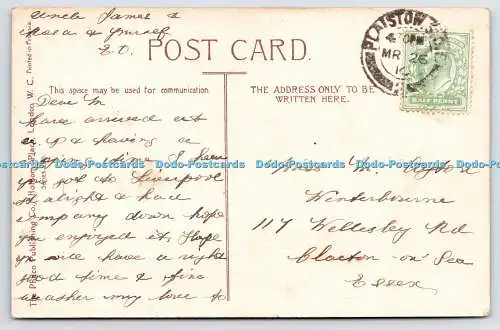 Uncle James &
& yourself
E.O.
POST CARD.
PLAISTOW
4. PM
MR 26
10
HALF PENNY
This space may be used for communication.
THE ADDRESS ONLY TO BE
WRITTEN HERE.
Dear M
have arrived at
& having a
time. I hear
you got to Liverpool
alright & had
company down hope
you enjoyed it, Hope
you will have a right
good time & fine
weather my love to
Miss M.
Winterbourne
117 Wellesley Rd
Clacton on Sea
Essex
The Photo Publishing Co., Holborn Place, London, W. C. Printed in
Dodo-Postcards Dodo-Postcards Dodo-Postcards Dodo-Postcards Dodo-Postcards